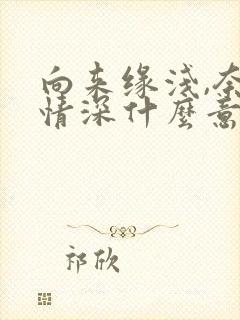 向来缘浅,奈
情深什麽意
祁欣